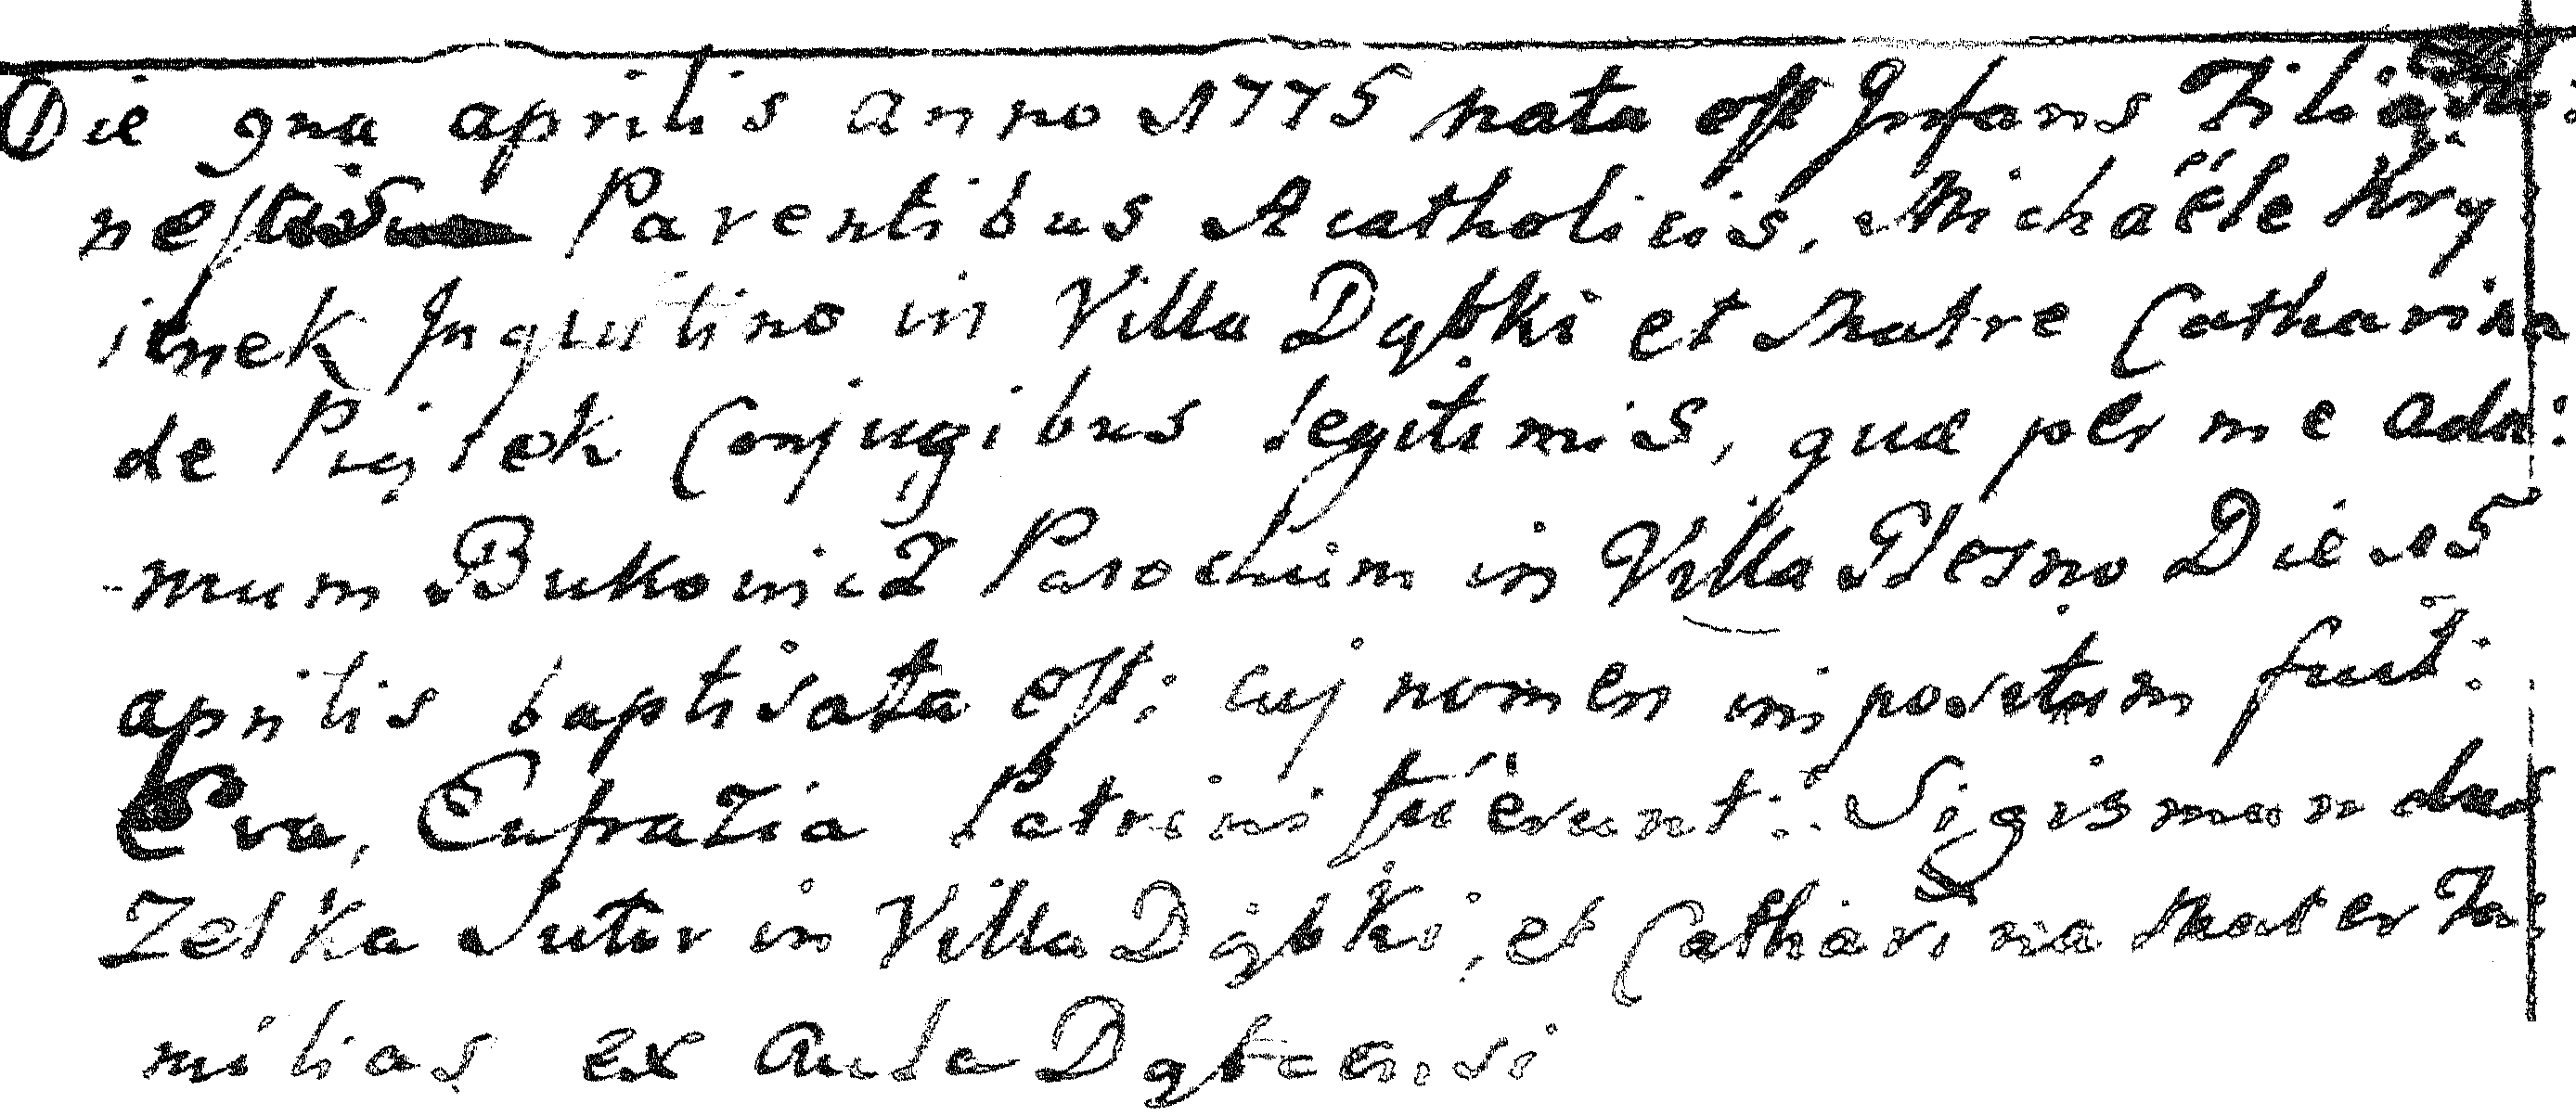 Die 9na aprilis anno 1775 nata est Infans Filia
nestis Parentibus Acatholicis, Michaële Kry
inek Inquilino in Villa Dąbki et Matre Catharina
de Piątek Conjugibus legitimis, quæ per me Ada:
mum Bukowicz Parochum in Villa Glesno Die 15
aprilis baptisata est; cuj nomen impositum fuit:
Eva, Eufrazia Patrini fuerunt: Sigismundus
Zelka Sutor in Villa Dąbki, et Catharina Mater Fa:
milias ex Aula Dąbcensi